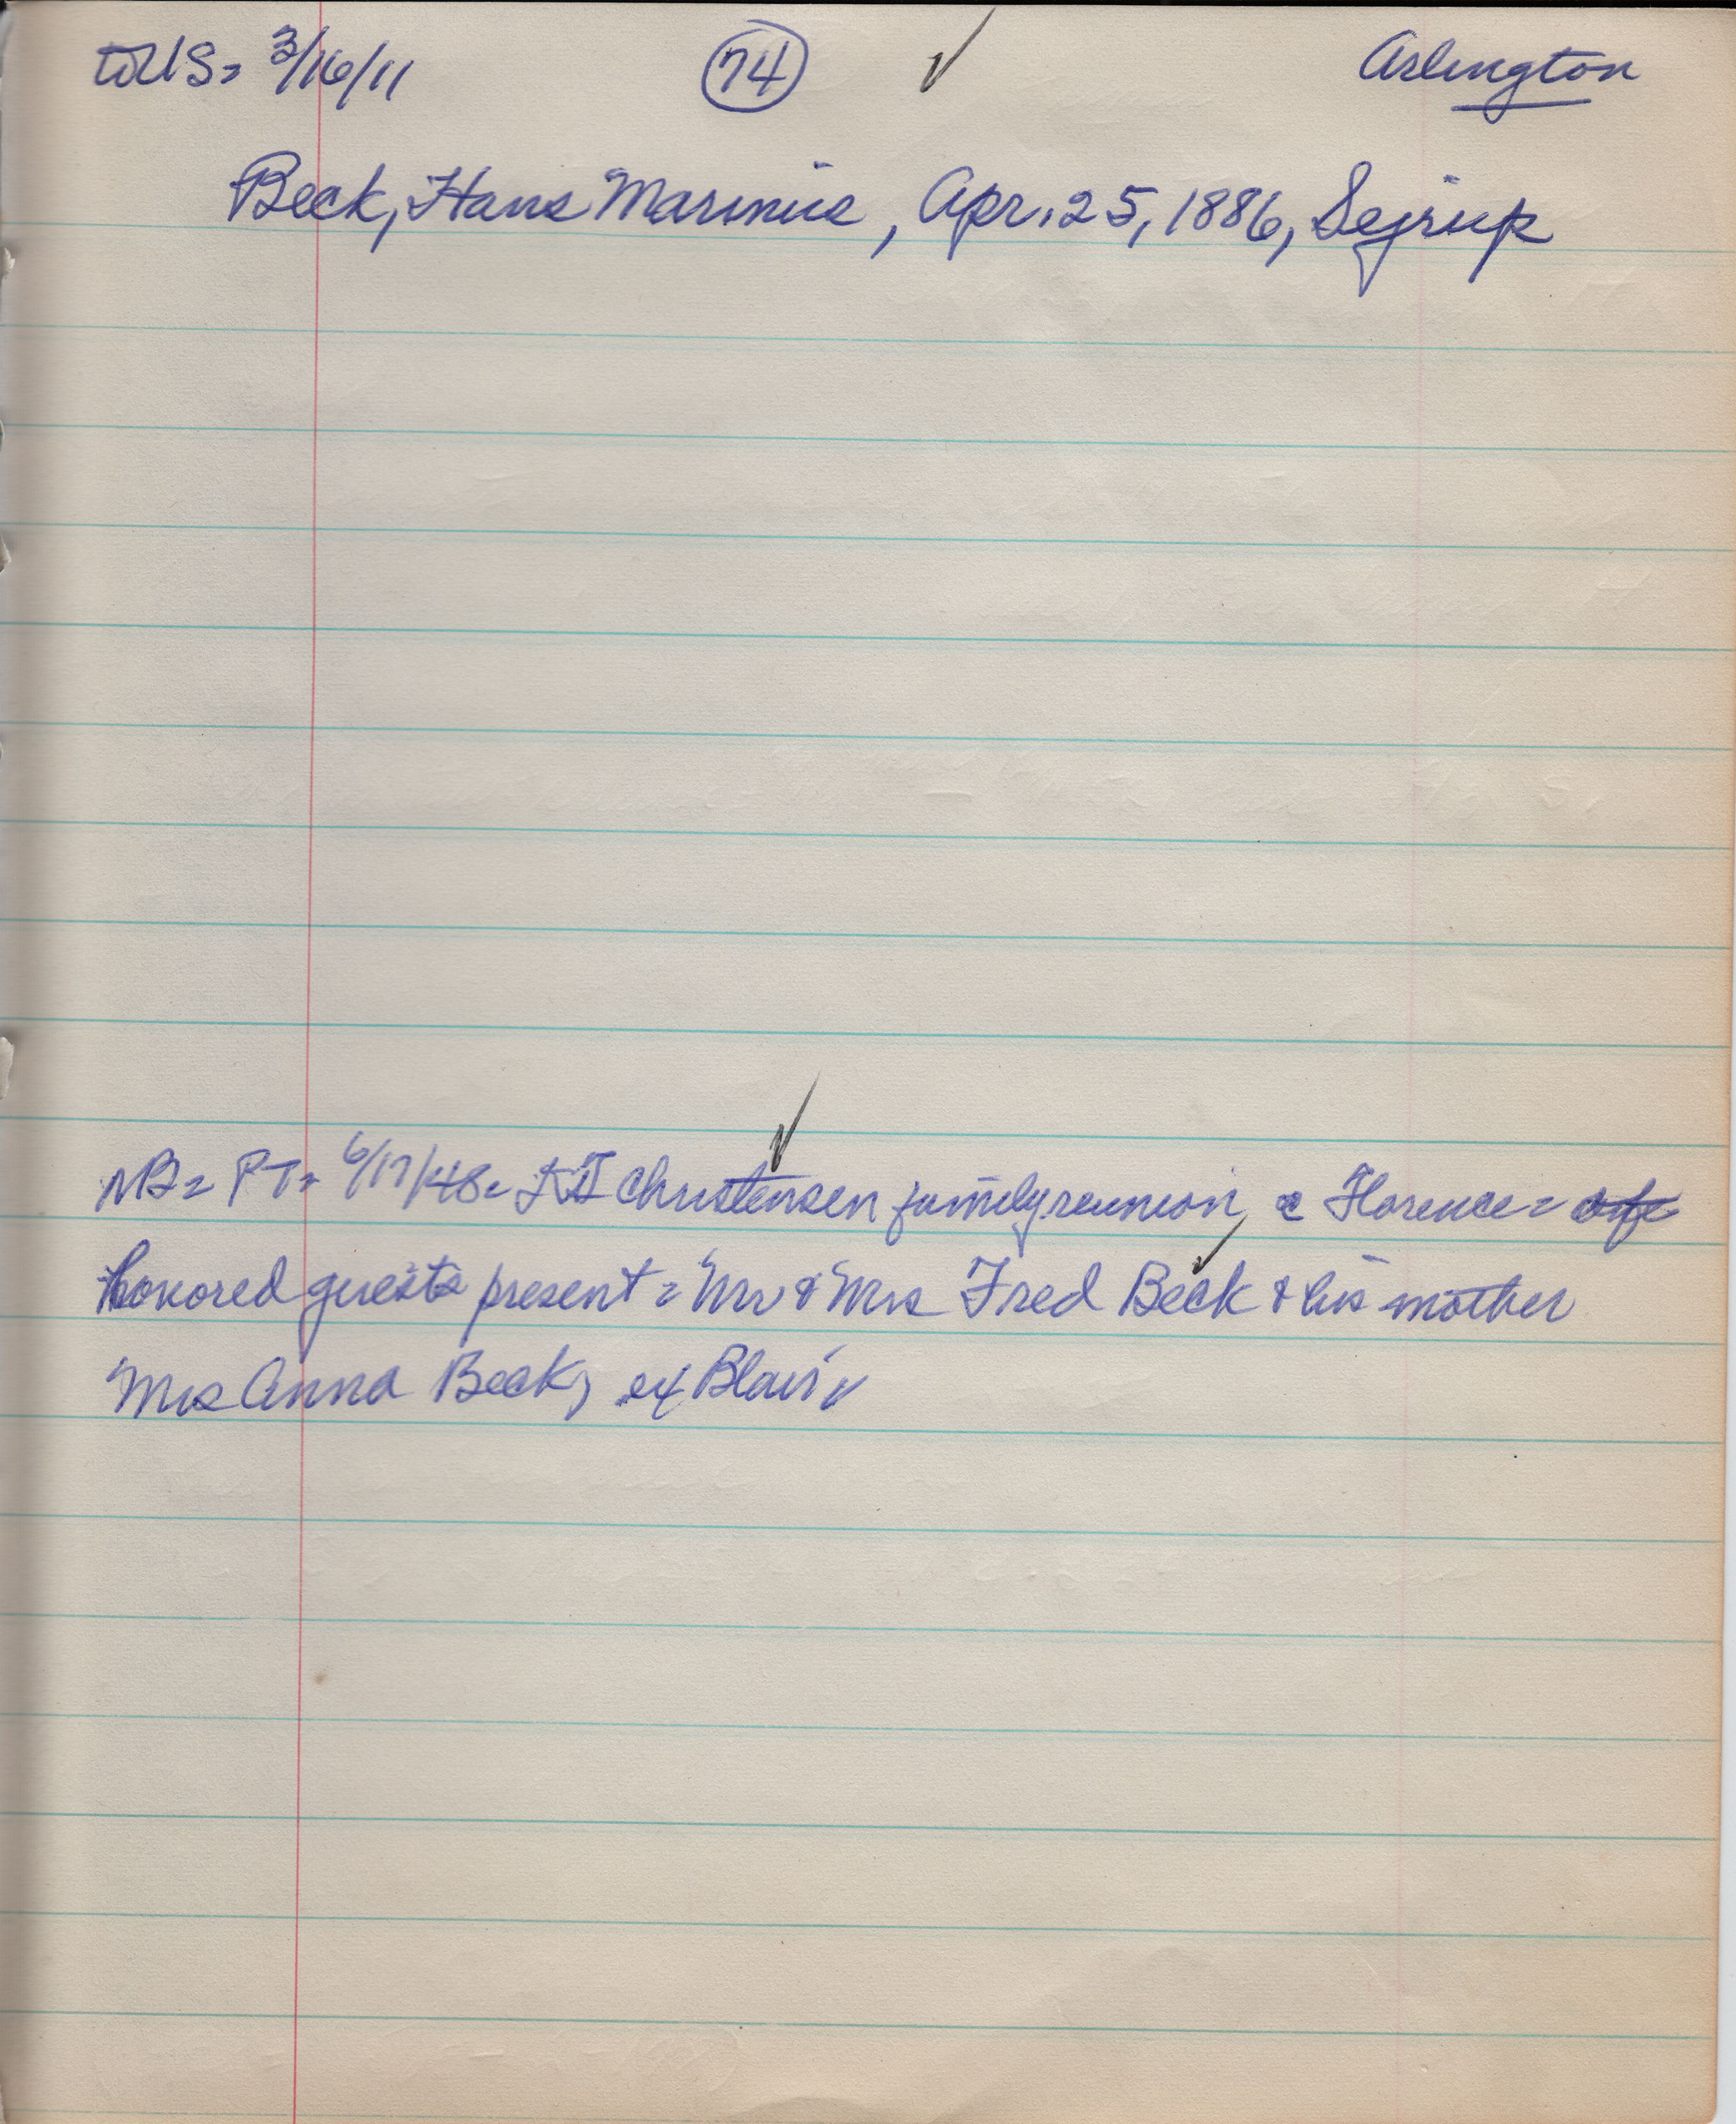 to US = 3/16/11 74 ✓ Arlington
Beck, Hans Marinus, Apr. 25, 1886, Sejrup
NB = PT = 6/17/48 = Christensen family reunion, c Florence =
honored guests present = Mr & Mrs Fred Beck & his mother
Mrs Anna Beck, of Blair ✓